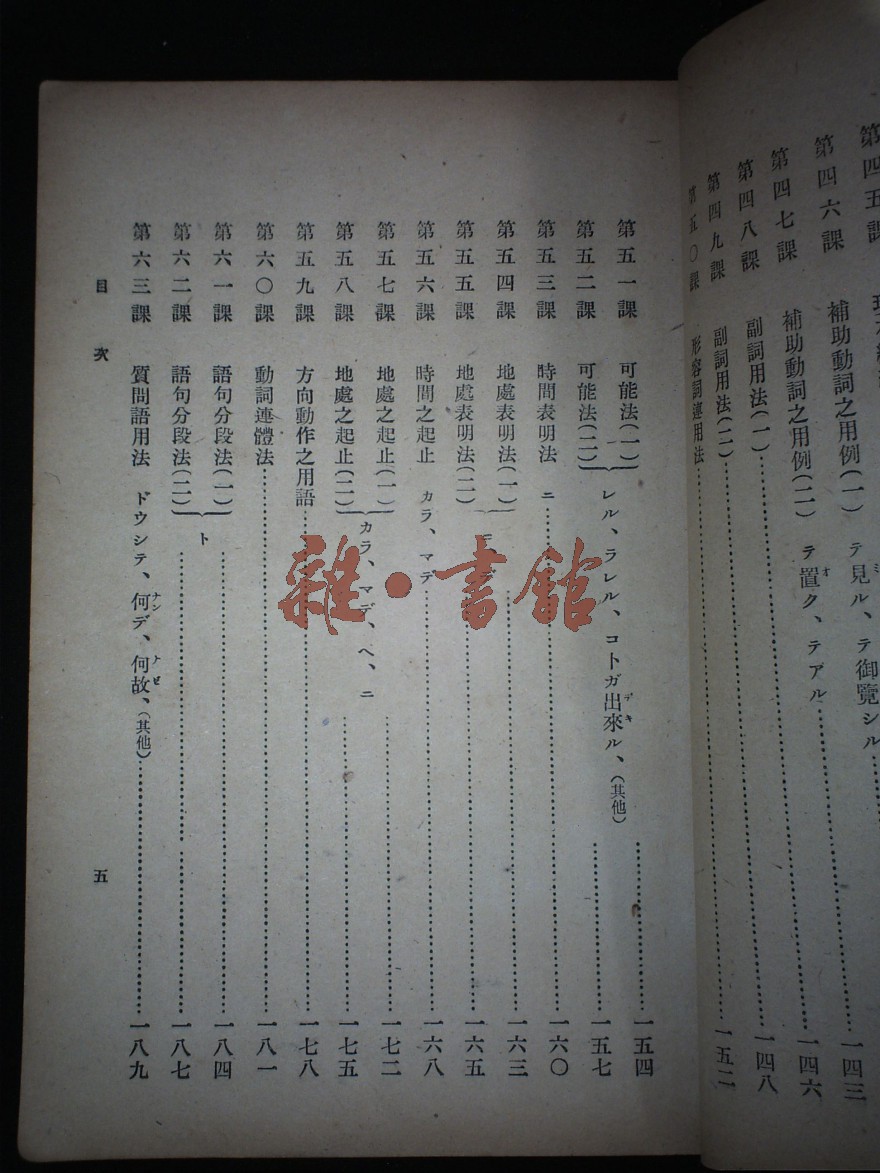 第四五課
第四六課 補助動詞之用例(一) テ見ル、テ御覽 一四三
第四七課 補助動詞之用例(二) テ置オク、テアル 一四六
第四八課 副詞用法(一) 一四八
第四九課 副詞用法(二) 一五二
第五〇課 形容詞連用法
第五一課 可能法(一)
第五二課 可能法(二) レル、ラレル、コトガ出來デキル、(其他) 一五四
一五七
第五三課 時間表明法 ニ 一六〇
第五四課 地處表明法(一) 一六三
第五五課 地處表明法(二) 一六五
第五六課 時間之起止 カラ、マデ 一六八
第五七課 地處之起止(一) 一七二
第五八課 地處之起止(二) カラ、マデ、ヘ、ニ 一七五
第五九課 方向動作之用語 一七八
第六〇課 動詞連體法 一八一
第六一課 語句分段法(一) 一八四
第六二課 語句分段法(二) ト 一八七
第六三課 質問語用法 ドウシテ、何ナンデ、何故ナゼ、(其他) 一八九
目次 五
雜·書館